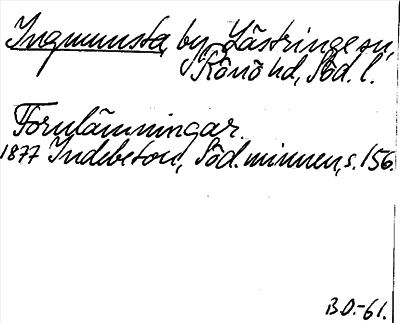 Ingmunsta, by, Lästringe sn,
Rönö hd, Söd. l.
Fornlämningar.
1877 Indebetou, Söd. minnen, s. 156.
B.D.-61.